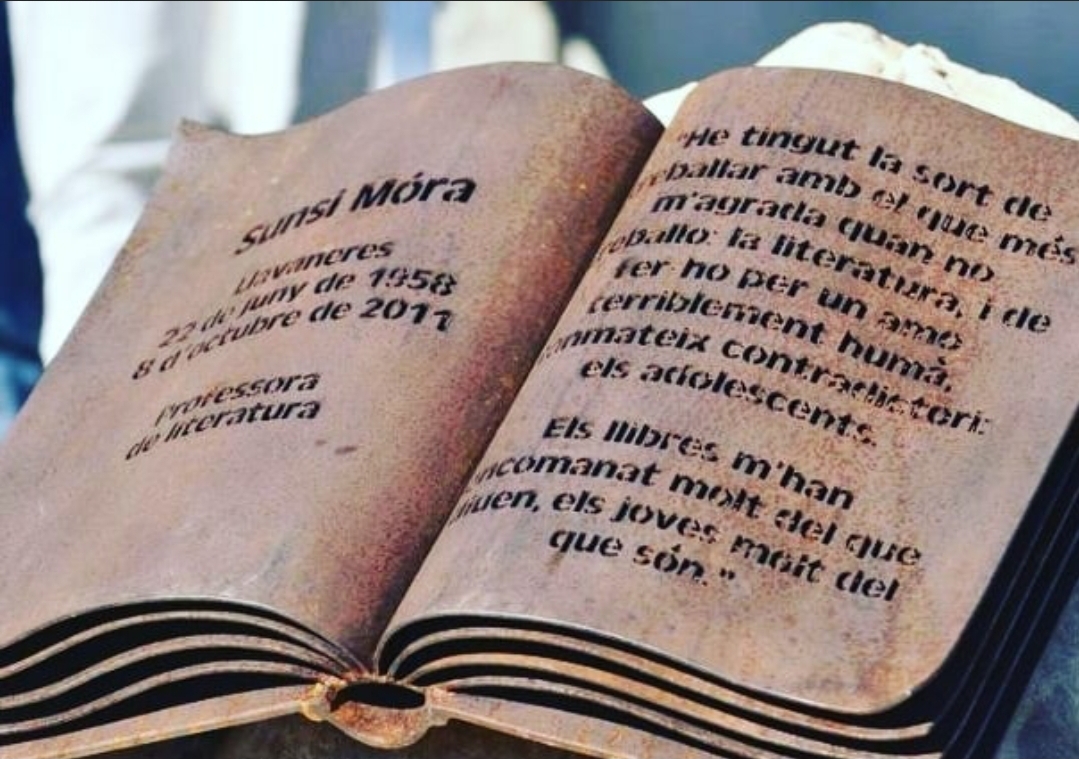 Sunsi Móra
Llavaneres
22 de juny de 1958
8 d'octubre de 2011
Professora
de literatura
"He tingut la sort de
treballar amb el que més
m'agrada quan no
treballo: la literatura, i de
fer ho per un amo
terriblement humà,
enmateix contradictori:
els adolescents.
Els llibres m'han
encomanat molt del que
diuen, els joves molt del
que són."